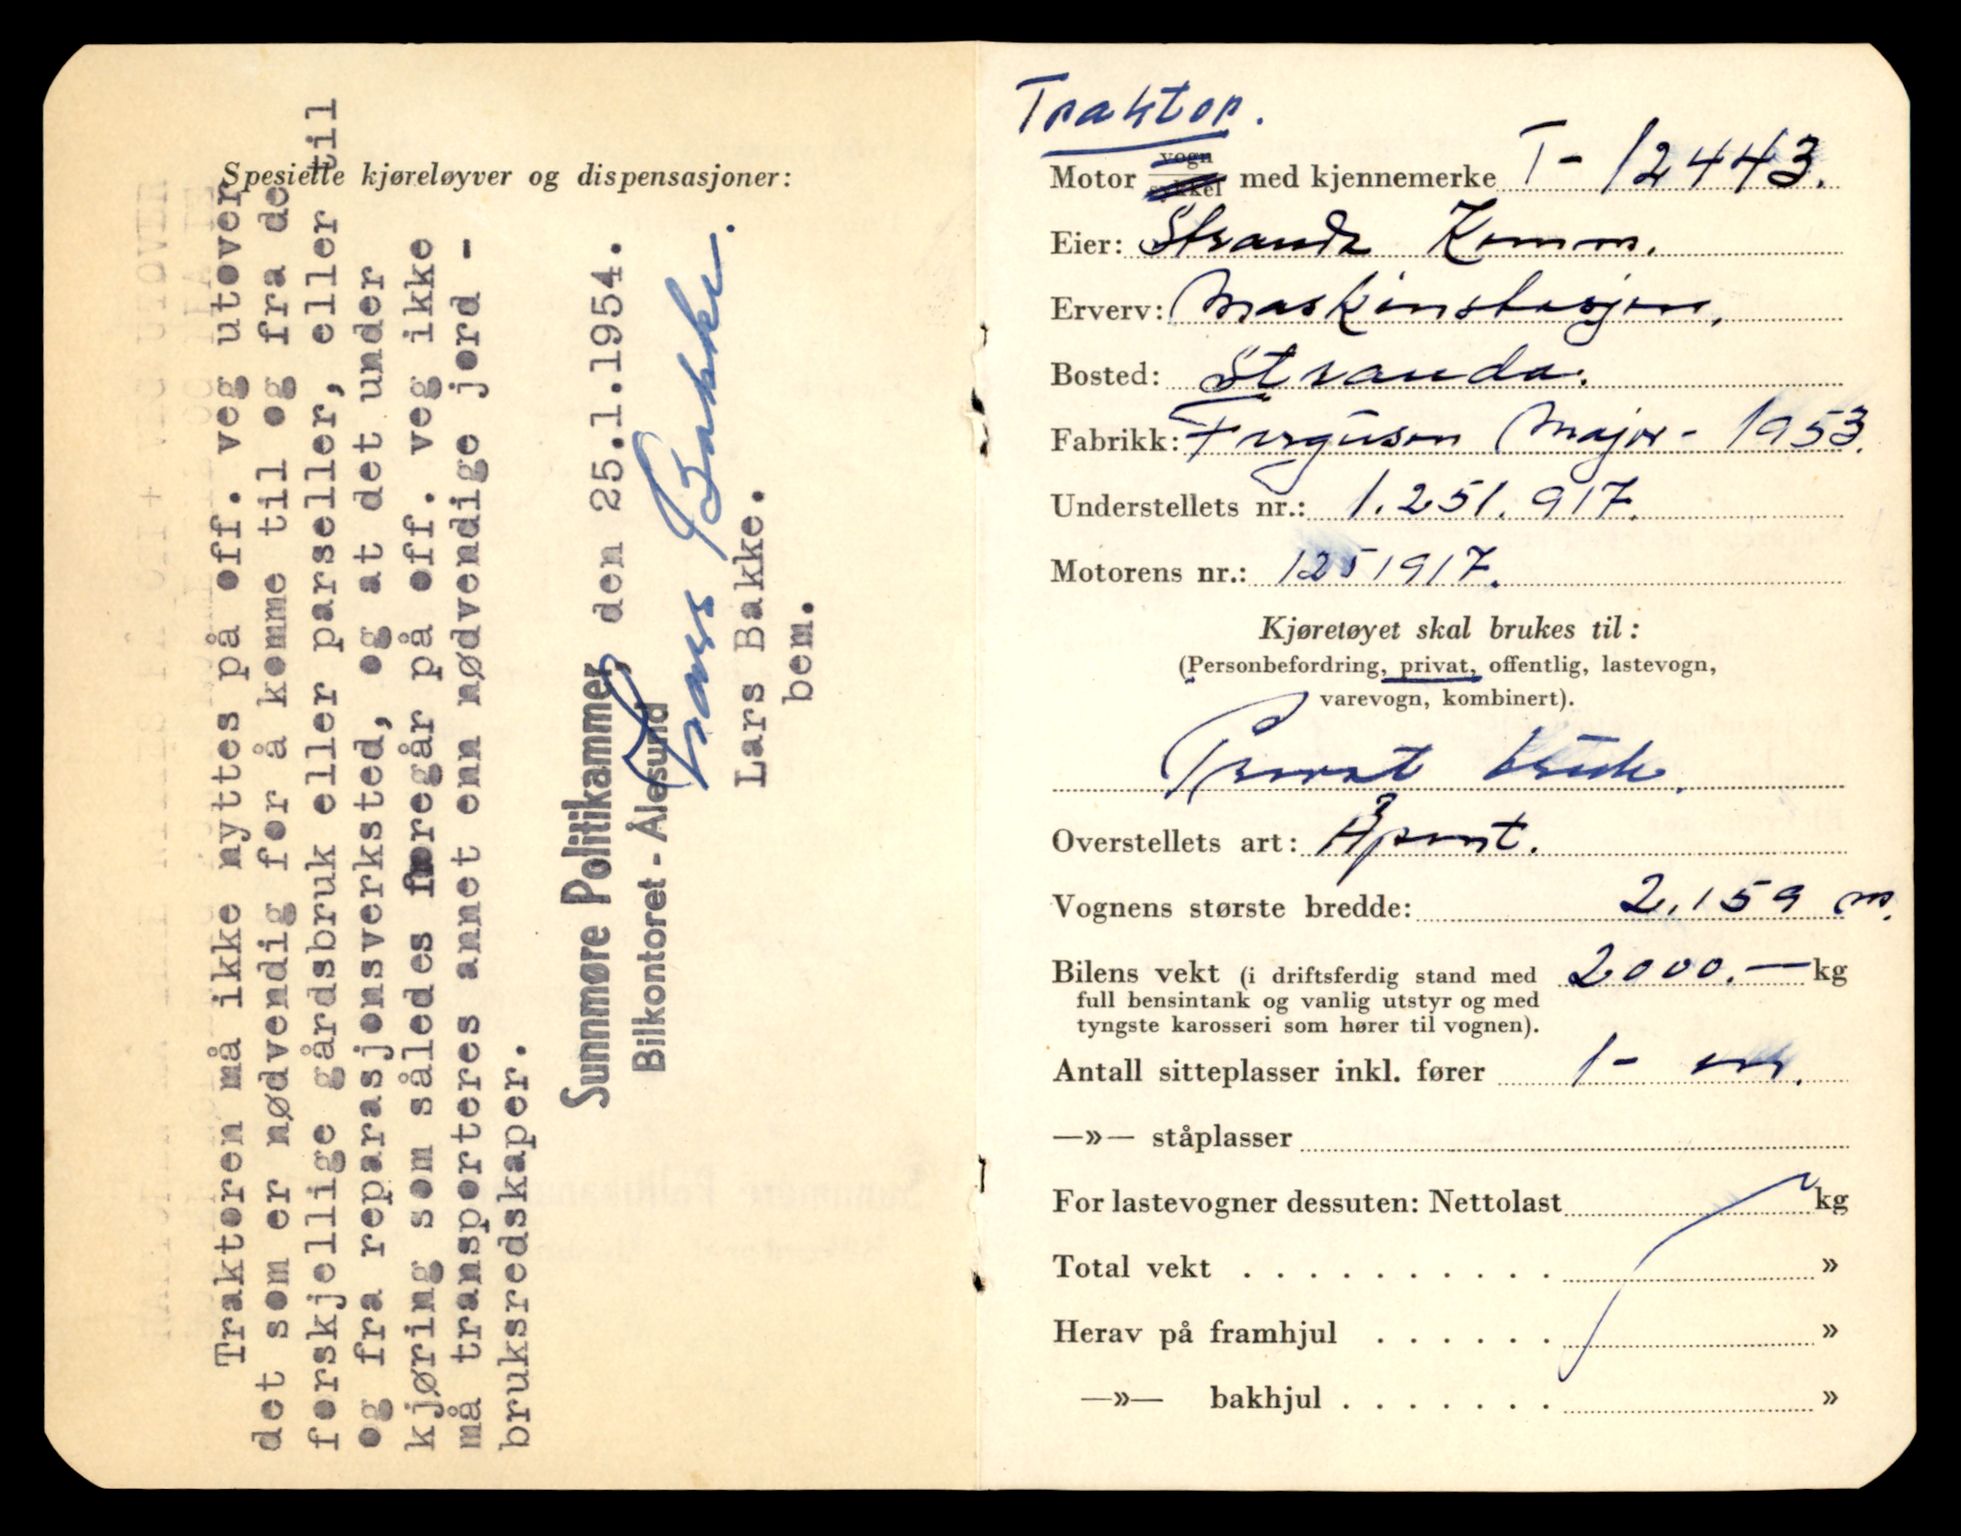 Spesielle kjøreløyver og dispensasjoner:
Traktoren må ikke nyttes på off. veg utover
det som er nødvendig for å komme til og fra de
forskjellige gårdsbruk eller parseller, eller til
og fra reparasjonsverksted, og at det under
kjøring som således foregår på off. veg ikke
må transporteres annet enn nødvendige jord -
bruksredskaper.
Sunnmøre Politikammer, den 25.1.1954.
Bilkontoret - Ålesund
Lars Bakke.
Lars Bakke.
bem.
Traktor.
Motor vogn sykkel med kjennemerke T- 12443.
Eier: Stranda Komm.
Erverv: Maskinstasjon.
Bosted: Stranda.
Fabrikk: Ferguson Major - 1953.
Understellets nr.: 1.251.917.
Motorens nr.: 1251917.
Kjøretøyet skal brukes til:
(Personbefordring, privat, offentlig, lastevogn,
varevogn, kombinert).
Privat bruk.
Overstellets art: Åpent.
Vognens største bredde: 2,159 m.
Bilens vekt (i driftsferdig stand med 2000.— kg
full bensintank og vanlig utstyr og med
tyngste karosseri som hører til vognen).
Antall sitteplasser inkl. fører 1- en.
—»— ståplasser
For lastevogner dessuten: Nettolast kg
Total vekt . . . . . . . . . . »
Herav på framhjul . . . . . . »
—»— bakhjul . . . . . . . »